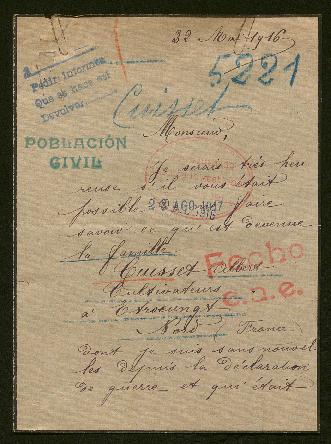 22 Mai 1916
Pedir informes
Que se hace así
Devolver
5221
Cuisset
POBLACIÓN
CIVIL
Monsieur,
Je serais très heu
reuse s'il vous était
possible faire
AGO 1917
savoir ce qu'est devenue
la famille
Fecho
Cuisset Albert
Cultivateurs
c.a.e.
à Etrœungt
Nord France
Dont je suis sans nouvel
les depuis la déclaration
de guerre et qui était